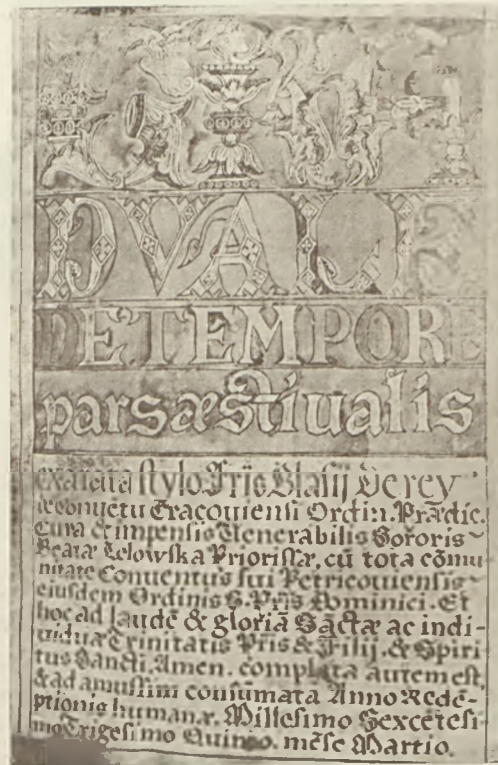 GRA
DVALE
DE TEMPORE
pars æstiualis
exarata stylo Frīs Blasij Derey
è conuctu Cracouiensi Ordin. Prædic.
Cura & impensis Venerabilis Sororis~
Beatæ Prioristæ, cū tota cōmu
nitate Conuentus sui Petricouiensis~
eiusdem Ordinis S. Prīs Dominici. Et
hoc ad laudē & gloriā Sāctæ ac indi-
uiduæ Trinitatis Prīs & Filij. & Spiri
tus Sancti. Amen. complata autem est,
& ad amussim consumata Anno Redē-
ptionis humanæ. Millesimo Sexcētesi-
mo Trigesimo Quinto. mēse Martio.